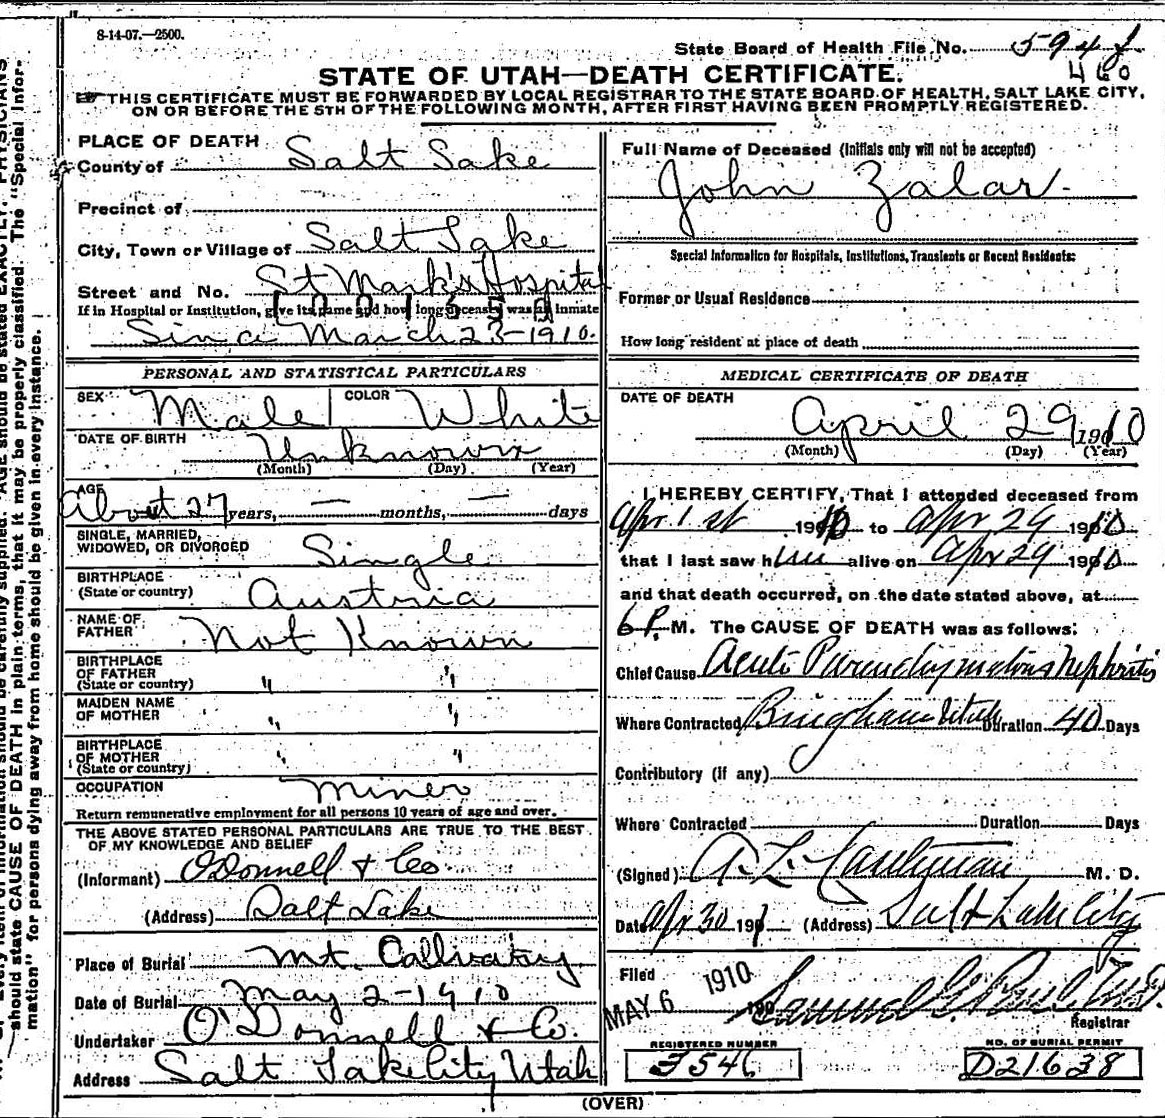 8-14-07.—2500.
State Board of Health File No. 594
460
STATE OF UTAH—DEATH CERTIFICATE.
THIS CERTIFICATE MUST BE FORWARDED BY LOCAL REGISTRAR TO THE STATE BOARD OF HEALTH, SALT LAKE CITY,
ON OR BEFORE THE 5TH OF THE FOLLOWING MONTH, AFTER FIRST HAVING BEEN PROMPTLY REGISTERED.
PLACE OF DEATH
County of Salt Lake
Precinct of
City, Town or Village of Salt Lake
Street and No. St Mark's Hospital
If in Hospital or Institution, give its name and how long deceased was an inmate
Since March 23-1910.
PERSONAL AND STATISTICAL PARTICULARS
SEX Male COLOR White
DATE OF BIRTH Unknown
(Month) (Day) (Year)
AGE
About 27 years, — months, — days
SINGLE, MARRIED,
WIDOWED, OR DIVORCED Single
BIRTHPLACE
(State or country) Austria
NAME OF
FATHER Not Known
BIRTHPLACE
OF FATHER
(State or country) " "
MAIDEN NAME
OF MOTHER " "
BIRTHPLACE
OF MOTHER
(State or country) " "
OCCUPATION Miner
Return remunerative employment for all persons 10 years of age and over.
THE ABOVE STATED PERSONAL PARTICULARS ARE TRUE TO THE BEST
OF MY KNOWLEDGE AND BELIEF
(Informant) O'Donnell & Co
(Address) Salt Lake
Place of Burial Mt. Callvatary
Date of Burial May 2-1910
Undertaker O'Donnell & Co.
Address Salt Lake City Utah
Full Name of Deceased (Initials only will not be accepted)
John Zalar
Special Information for Hospitals, Institutions, Transients or Recent Residents:
Former or Usual Residence
How long resident at place of death
MEDICAL CERTIFICATE OF DEATH
DATE OF DEATH
April 29 1910
(Month) (Day) (Year)
I HEREBY CERTIFY, That I attended deceased from
Apr 1st 1910 to Apr 29 1910
that I last saw him alive on Apr 29 1910
and that death occurred, on the date stated above, at
6 P. M. The CAUSE OF DEATH was as follows:
Chief Cause Acute Parenchymatous Nephritis
Where Contracted Bingham Utah Duration 40 Days
Contributory (if any)
Where Contracted Duration Days
(Signed) A. L. M. D.
Date Apr 30 191 (Address) Salt Lake City
Filed MAY 6 1910 190
Samuel G. Paul
Registrar
REGISTERED NUMBER
3546
NO. OF BURIAL PERMIT
D21638
(OVER)
should state CAUSE OF DEATH in plain terms, that it may be properly classified. The "Special Infor-
mation" for persons dying away from home should be given in every instance.